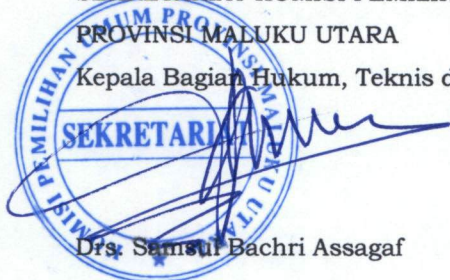 PROVINSI MALUKU UTARA
Kepala Bagian Hukum, Teknis d
KOMISI PEMILIHAN UMUM PROVINSI MALUKU UTARA
SEKRETARIAT
Drs. Samsul Bachri Assagaf